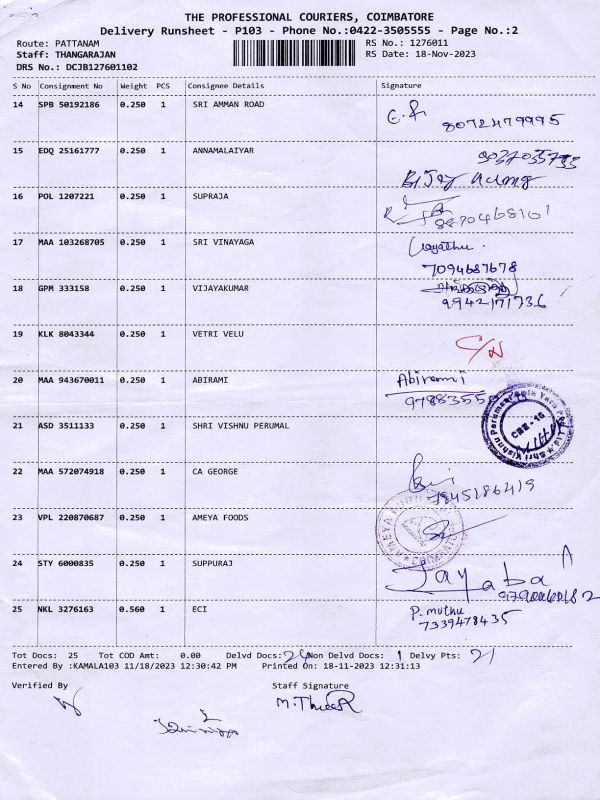 THE PROFESSIONAL COURIERS, COIMBATORE
Delivery Runsheet - P103 - Phone No.:0422-3505555 - Page No.:2
Route: PATTANAM RS No.: 1276011
Staff: THANGARAJAN RS Date: 18-Nov-2023
DRS No.: DCJB127601102
S No Consignment No Weight PCS Consignee Details Signature
14 SPB 50192186 0.250 1 SRI AMMAN ROAD
8072479995
15 EDQ 25161777 0.250 1 ANNAMALAIYAR
16 POL 1207221 0.250 1 SUPRAJA
17 MAA 103268705 0.250 1 SRI VINAYAGA
7094687678
18 GPM 333158 0.250 1 VIJAYAKUMAR
9942171736
19 KLK 8043344 0.250 1 VETRI VELU
C/N
20 MAA 943670011 0.250 1 ABIRAMI Abirami
9788355
21 ASD 3511133 0.250 1 SHRI VISHNU PERUMAL
CBE-16
22 MAA 572074918 0.250 1 CA GEORGE
7845186419
23 VPL 220870687 0.250 1 AMEYA FOODS
24 STY 6000835 0.250 1 SUPPURAJ
Jayaba
25 NKL 3276163 0.560 1 ECI P.muthu
7339478435
Tot Docs: 25 Tot COD Amt: 0.00 Delvd Docs: 24 Non Delvd Docs: 1 Delvy Pts: 21
Entered By :KAMALA103 11/18/2023 12:30:42 PM Printed On: 18-11-2023 12:31:13
Verified By Staff Signature